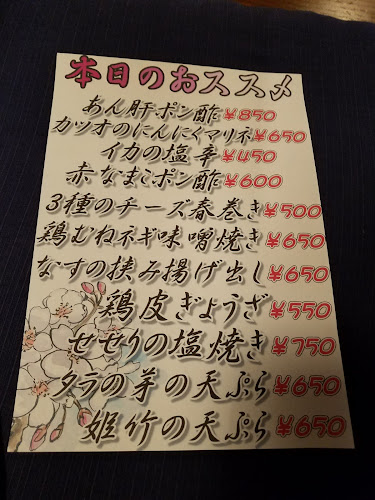 本日のおススメ
あん肝ポン酢¥850
カツオのにんにくマリネ¥650
イカの塩辛¥450
赤なまこポン酢¥600
3種のチーズ春巻き¥500
鶏むねネギ味噌焼き¥650
なすの挟み揚げ出し¥650
鶏皮ぎょうざ¥550
せせりの塩焼き¥750
タラの芽の天ぷら¥650
姫竹の天ぷら¥650